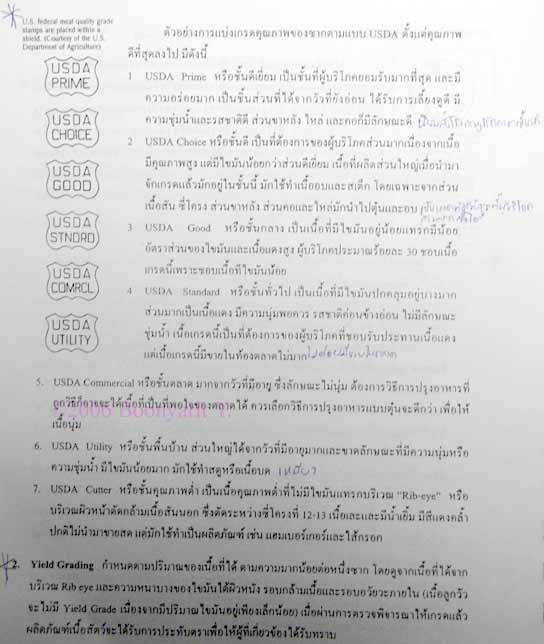 U.S. federal meat quality grade
stamps are placed within a
shield. (Courtesy of the U.S.
Department of Agriculture)
USDA
PRIME
USDA
CHOICE
USDA
GOOD
USDA
STNDRD
USDA
COMRCL
USDA
UTILITY
ตัวอย่างการแบ่งเกรดคุณภาพของซากตามแบบ USDA ตั้งแต่คุณภาพ
ดีที่สุดลงไป มีดังนี้
1 USDA Prime หรือชั้นดีเยี่ยม เป็นชั้นที่ผู้บริโภคยอมรับมากที่สุด และมี
ความอร่อยมาก เป็นชิ้นส่วนที่ได้จากวัวที่ยังอ่อน ได้รับการเลี้ยงดูดี มี
ความชุ่มน้ำและรสชาติดี ส่วนขาหลัง ไหล่ และคอก็มีลักษณะดี
2 USDA Choice หรือชั้นดี เป็นที่ต้องการของผู้บริโภคส่วนมากเนื่องจากเนื้อ
มีคุณภาพสูง แต่มีไขมันน้อยกว่าส่วนดีเยี่ยม เนื้อที่ผลิตส่วนใหญ่เมื่อนำมา
จัดเกรดแล้วมักอยู่ในชั้นนี้ มักใช้ทำเนื้ออบและสเต็ก โดยเฉพาะจากส่วน
เนื้อสัน ซี่โครง ส่วนขาหลัง ส่วนคอและไหล่มักนำไปตุ๋นและอบ
3 USDA Good หรือชั้นกลาง เป็นเนื้อที่มีไขมันอยู่น้อยแทรกมีน้อย
อัตราส่วนของไขมันและเนื้อแดงสูง ผู้บริโภคประมาณร้อยละ 30 ชอบเนื้อ
เกรดนี้เพราะชอบเนื้อที่ไขมันน้อย
4 USDA Standard หรือชั้นทั่วไป เป็นเนื้อที่มีไขมันปกคลุมอยู่บางมาก
ส่วนมากเป็นเนื้อแดง มีความนุ่มพอควร รสชาติค่อนข้างอ่อน ไม่มีลักษณะ
ชุ่มน้ำ เนื้อเกรดนี้เป็นที่ต้องการของผู้บริโภคที่ชอบรับประทานเนื้อแดง
แต่เนื้อเกรดนี้มีขายในท้องตลาดไม่มาก
5. USDA Commercial หรือชั้นตลาด มากจากวัวที่มีอายุ ซึ่งลักษณะไม่นุ่ม ต้องการวิธีการปรุงอาหารที่
ถูกวิธีก็อาจจะได้เนื้อที่เป็นที่พอใจของตลาดได้ ควรเลือกวิธีการปรุงอาหารแบบตุ๋นจะดีกว่า เพื่อให้
เนื้อนุ่ม
6. USDA Utility หรือชั้นพื้นบ้าน ส่วนใหญ่ได้จากวัวที่มีอายุมากและขาดลักษณะที่มีความนุ่มหรือ
ความชุ่มน้ำ มีไขมันน้อยมาก มักใช้ทำสตูหรือเนื้อบด เหนียว
7. USDA Cutter หรือชั้นคุณภาพต่ำ เป็นเนื้อคุณภาพต่ำที่ไม่มีไขมันแทรกบริเวณ "Rib-eye" หรือ
บริเวณผิวหน้าตัดกล้ามเนื้อสันนอก ซึ่งตัดระหว่างซี่โครงที่ 12-13 เนื้อเละและมีน้ำเยิ้ม มีสีแดงคล้ำ
ปกติไม่นำมาขายสด แต่มักใช้ทำเป็นผลิตภัณฑ์ เช่น แฮมเบอร์เกอร์และไส้กรอก
2. Yield Grading กำหนดตามปริมาณของเนื้อที่ได้ ตามความมากน้อยต่อหนึ่งซาก โดยดูจากเนื้อที่ได้จาก
บริเวณ Rib eye และความหนาบางของไขมันใต้ผิวหนัง รอบกล้ามเนื้อและรอบอวัยวะภายใน (เนื้อลูกวัว
จะไม่มี Yield Grade เนื่องจากมีปริมาณไขมันอยู่เพียงเล็กน้อย) เมื่อผ่านการตรวจพิจารณาให้เกรดแล้ว
ผลิตภัณฑ์เนื้อสัตว์จะได้รับการประทับตราเพื่อให้ผู้ที่เกี่ยวข้องได้รับทราบ